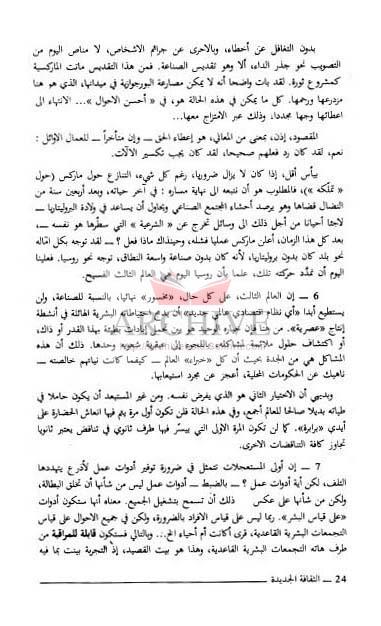 بدون التغافل عن أخطاء، وبالاحرى عن جرائم الاشخاص، لا مناص اليوم من
التصويب نحو جذر الداء، ألا وهو تقديس الصناعة. فمن هذا التقديس ماتت الماركسية
كمشروع ثورة. لقد بات واضحا أنه لا يمكن مصارعة البورجوازية في ميدانها، الذي هو هنا
مزدرعها ورحمها. كل ما يمكن في هذه الحالة هو، في « أحسن الاحوال »... الانتهاء الى
اعطائها وجها مجددا، وذلك عبر الامتزاج معها...
المقصود، إذن، بمعنى من المعاني، هو إعطاء الحق ــ وإن متأخراً ــ للعمال الاوائل :
نعم، لقد كان رد فعلهم صحيحا، لقد كان يجب تكسير الآلات.
بيأس أقل، إذا كان لا يزال ضروريا، رغم كل شيء، التنازع حول ماركس (حول
« تملكه »)، فالمطلوب هو أن نتبعه الى نهاية مساره : في آخر حياته، وبعد أربعين سنة من
النضال قضاها وهو يرصد أحشاء المجتمع الصناعي ويحاول أن يساعد في ولادة البروليتاريا ــ
لاجئا أحيانا من أجل ذلك الى وسائل تخرج عن « الشرعية » التي سطرها هو نفسه ــ،
بعد كل هذا الزمان، أعلن ماركس عمليا فشله، وحينذاك ماذا فعل ؟ ــ لقد توجه بكل آماله
نحو بلد كان بدون بروليتاريا، لأنه كان بدون صناعة واسعة النطاق، توجه نحو روسيا. فعلينا
اليوم أن نمدد حركته تلك، علما بأن روسيا اليوم هي العالم الثالث الفسيح.
6 ــ إن العالم الثالث، على كل حال، «مخسور» نهائيا، بالنسبة للصناعة، ولن
يستطيع أبدا «أي نظام اقتصادي عالمي جديد» أن يدمج احتياطاته البشرية الهائلة في أنشطة
إنتاج «عصرية». من هنا فإن خياره الوحيد هو بين تحمل إبادات بطيئة بهذا القدر أو ذاك،
أو اكتشاف حلول ملائمة لمشاكله، باللجوء إلى عبقرية شعوبه وحدها. ذلك أن هذه
المشاكل هي من الجدة بحيث أن كل «خبراء» العالم ــ كيفما كانت نياتهم خالصته ــ
ناهيك عن الحكومات المحلية، أعجز عن مجرد استيعابها.
وبديهي أن الاختيار الثاني هو الذي يفرض نفسه. ومن غير المستبعد أن يكون حاملا في
طياته بديلا صالحا للعالم أجمع، وفي هذه الحالة فلن تكون أول مرة يتم فيها انعاش الحضارة على
أيدي «برابرة». كما لن تكون المرة الاولى التي ييسّر فيها طرف ثانوي في تناقض يعتبر ثانويا
تجاوز كافة التناقضات الاخرى.
7 ــ إن أولى المستعجلات تتمثل في ضرورة توفير أدوات عمل لأذرع يتهددها
التلف، لكن أية أدوات عمل ؟ ــ بالضبط ــ أدوات عمل ليس من شأنها أن تخلق البطالة،
ولكن من شأنها على عكس ذلك أن تسمح بتشغيل الجميع. معناه أنها ستكون أدوات
«على قياس البشر». ربما ليس على قياس الافراد بالضرورة، ولكن في جميع الاحوال على قياس
التجمعات البشرية القاعدية، قرى أكانت أم أحياء الخ... وبالتالي فستكون قابلة للمراقبة من
طرف هاته التجمعات البشرية القاعدية، وهذا هو بيت القصيد، إذ التجربة بينت بما فيه
24 ــ الثقافة الجديدة
ARCHIVE